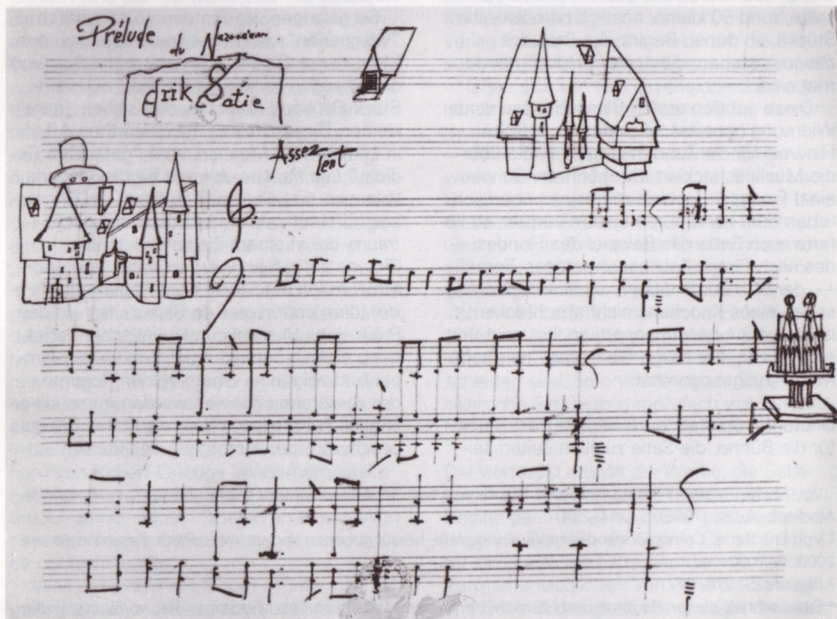 Prelude
du Nazaréen
Erik Satie
Assez lent